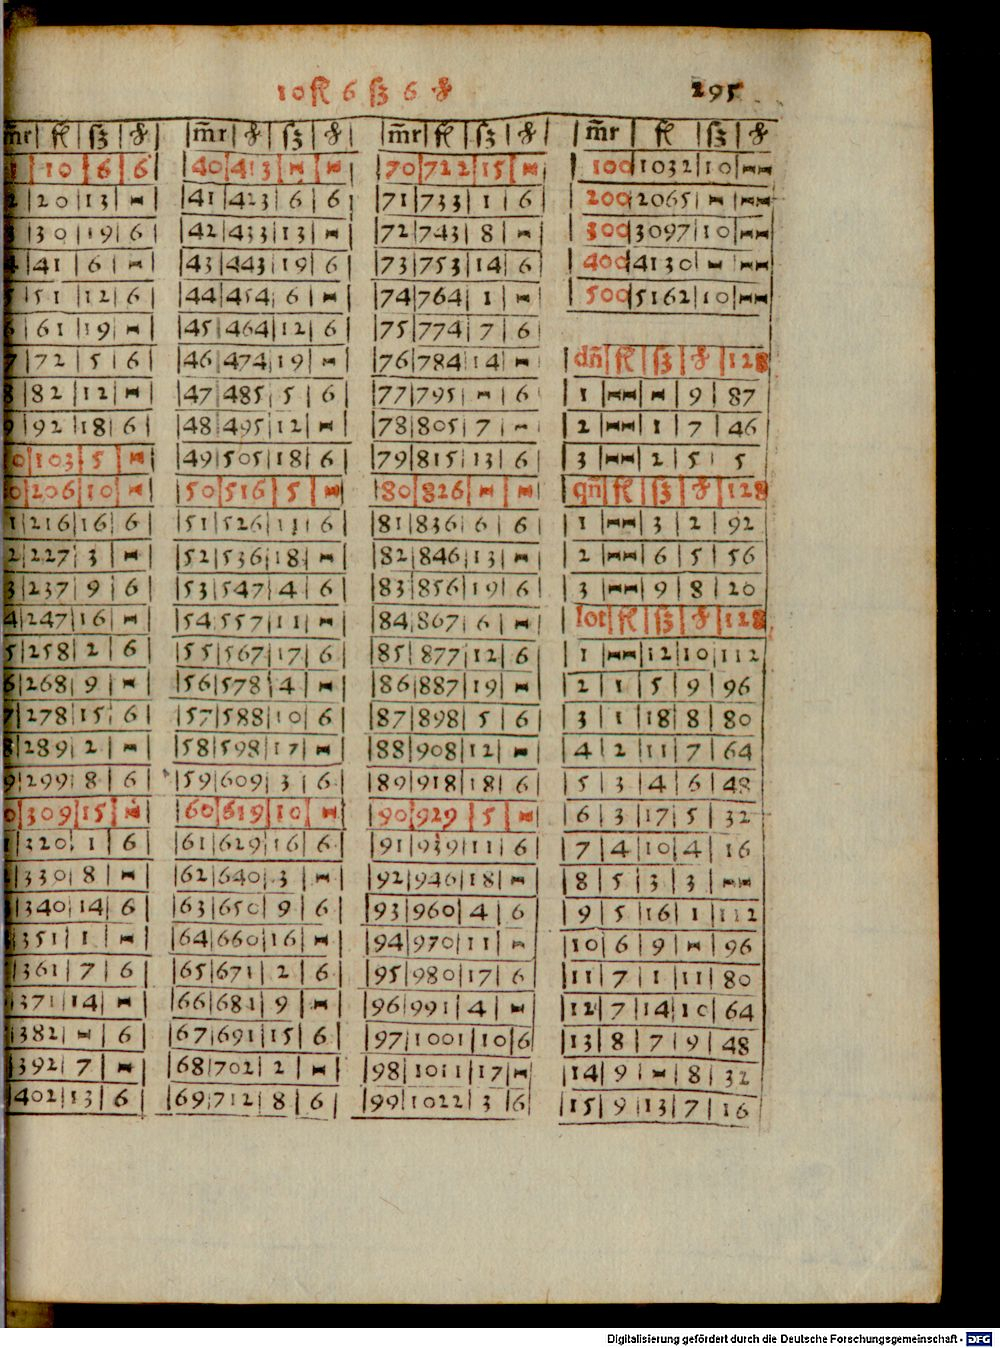 10 fl 6 ß 6 ₰ 295
m̄r | fl | ß | ₰ | m̄r | ₰ | ß | ₰ | m̄r | fl | ß | ₰ | m̄r | fl | ß | ₰
1 | 10 | 6 | 6 | 40 | 413 | - | - | 70 | 722 | 15 | - | 100 | 1032 | 10 | --
2 | 20 | 13 | - | 41 | 423 | 6 | 6 | 71 | 733 | 1 | 6 | 200 | 2065 | - | --
3 | 30 | 19 | 6 | 42 | 433 | 13 | - | 72 | 743 | 8 | - | 300 | 3097 | 10 | --
4 | 41 | 6 | - | 43 | 443 | 19 | 6 | 73 | 753 | 14 | 6 | 400 | 4130 | - | --
5 | 51 | 12 | 6 | 44 | 454 | 6 | - | 74 | 764 | 1 | - | 500 | 5162 | 10 | --
6 | 61 | 19 | - | 45 | 464 | 12 | 6 | 75 | 774 | 7 | 6
7 | 72 | 5 | 6 | 46 | 474 | 19 | - | 76 | 784 | 14 | - | dn̄ | fl | ß | ₰ | 128
8 | 82 | 12 | - | 47 | 485 | 5 | 6 | 77 | 795 | - | 6 | 1 | -- | - | 9 | 87
9 | 92 | 18 | 6 | 48 | 495 | 12 | - | 78 | 805 | 7 | - | 2 | -- | 1 | 7 | 46
0 | 103 | 5 | - | 49 | 505 | 18 | 6 | 79 | 815 | 13 | 6 | 3 | -- | 2 | 5 | 5
0 | 206 | 10 | - | 50 | 516 | 5 | - | 80 | 826 | - | - | qn̄ | fl | ß | ₰ | 128
1 | 216 | 16 | 6 | 51 | 526 | 11 | 6 | 81 | 836 | 6 | 6 | 1 | -- | 3 | 2 | 92
2 | 227 | 3 | - | 52 | 536 | 18 | - | 82 | 846 | 13 | - | 2 | -- | 6 | 5 | 56
3 | 237 | 9 | 6 | 53 | 547 | 4 | 6 | 83 | 856 | 19 | 6 | 3 | -- | 9 | 8 | 20
4 | 247 | 16 | - | 54 | 557 | 11 | - | 84 | 867 | 6 | - | lot | fl | ß | ₰ | 128
5 | 258 | 2 | 6 | 55 | 567 | 17 | 6 | 85 | 877 | 12 | 6 | 1 | -- | 12 | 10 | 112
6 | 268 | 9 | - | 56 | 578 | 4 | - | 86 | 887 | 19 | - | 2 | 1 | 5 | 9 | 96
7 | 278 | 15 | 6 | 57 | 588 | 10 | 6 | 87 | 898 | 5 | 6 | 3 | 1 | 18 | 8 | 80
8 | 289 | 2 | - | 58 | 598 | 17 | - | 88 | 908 | 12 | - | 4 | 2 | 11 | 7 | 64
9 | 299 | 8 | 6 | 59 | 609 | 3 | 6 | 89 | 918 | 18 | 6 | 5 | 3 | 4 | 6 | 48
0 | 309 | 15 | - | 60 | 619 | 10 | - | 90 | 929 | 5 | - | 6 | 3 | 17 | 5 | 32
1 | 320 | 1 | 6 | 61 | 629 | 16 | 6 | 91 | 939 | 11 | 6 | 7 | 4 | 10 | 4 | 16
330 | 8 | - | 62 | 640 | 3 | - | 92 | 946 | 18 | - | 8 | 5 | 3 | 3 | --
340 | 14 | 6 | 63 | 650 | 9 | 6 | 93 | 960 | 4 | 6 | 9 | 5 | 16 | 1 | 112
351 | 1 | - | 64 | 660 | 16 | - | 94 | 970 | 11 | - | 10 | 6 | 9 | - | 96
361 | 7 | 6 | 65 | 671 | 2 | 6 | 95 | 980 | 17 | 6 | 11 | 7 | 1 | 11 | 80
371 | 14 | - | 66 | 681 | 9 | - | 96 | 991 | 4 | - | 12 | 7 | 14 | 10 | 64
382 | - | 6 | 67 | 691 | 15 | 6 | 97 | 1001 | 10 | 6 | 13 | 8 | 7 | 9 | 48
392 | 7 | - | 68 | 702 | 2 | - | 98 | 1011 | 17 | - | 14 | 9 | - | 8 | 32
402 | 13 | 6 | 69 | 712 | 8 | 6 | 99 | 1022 | 3 | 6 | 15 | 9 | 13 | 7 | 16
Digitalisierung gefördert durch die Deutsche Forschungsgemeinschaft - DFG